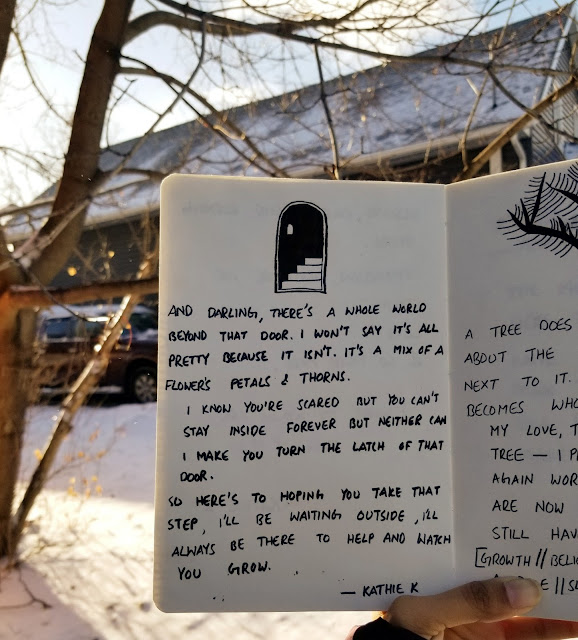 AND DARLING, THERE'S A WHOLE WORLD
BEYOND THAT DOOR. I WON'T SAY IT'S ALL
PRETTY BECAUSE IT ISN'T. IT'S A MIX OF A
FLOWER'S PETALS & THORNS.
I KNOW YOU'RE SCARED BUT YOU CAN'T
STAY INSIDE FOREVER BUT NEITHER CAN
I MAKE YOU TURN THE LATCH OF THAT
DOOR.
SO HERE'S TO HOPING YOU TAKE THAT
STEP, I'LL BE WAITING OUTSIDE, I'LL
ALWAYS BE THERE TO HELP AND WATCH
YOU GROW.
— KATHIE K
A TREE DOES
ABOUT THE
NEXT TO IT.
BECOMES
MY LOVE,
TREE — I
AGAIN
ARE NOW
STILL
[GROWTH //